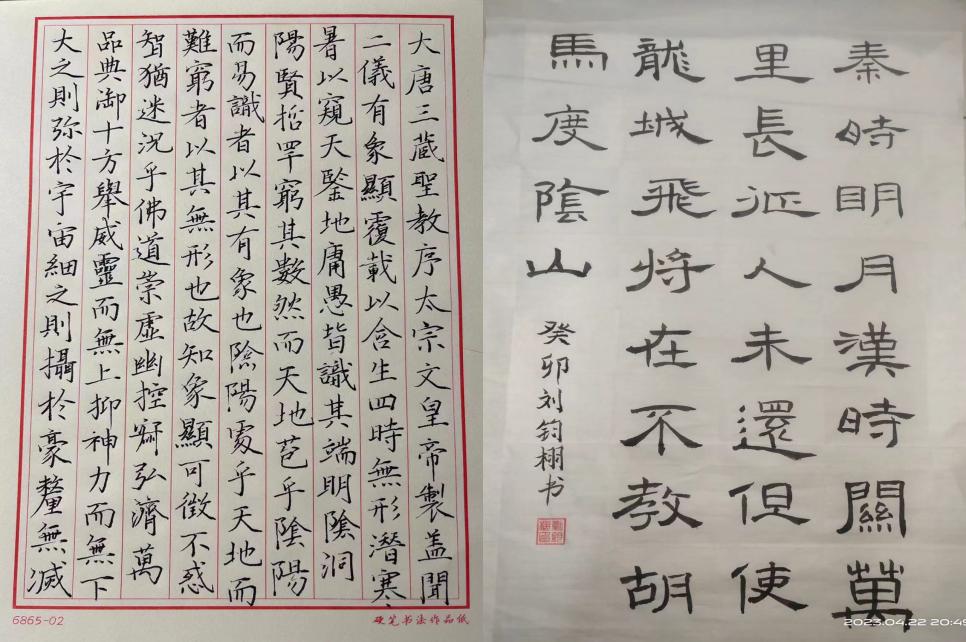 大唐三藏聖教序太宗文皇帝製蓋聞
二儀有象顯覆載以含生四時無形潛寒
暑以窺天鑒地庸愚皆識其端明陰洞
陽賢哲罕窮其數然而天地苞乎陰陽
而易識者以其有象也陰陽處乎天地而
難窮者以其無形也故知象顯可徵不惑
智猶迷況乎佛道崇虛幽控寂弘濟萬
品典御十方舉威靈而無上抑神力而無下
大之則弥於宇宙細之則攝於豪釐無滅
6865-02
硬笔书法作品纸
秦時眀月漢時關萬
里長征人未還但使
龍城飛将在不教胡
馬度陰山
癸卯刘钧栩书
2023.04.22 20:49